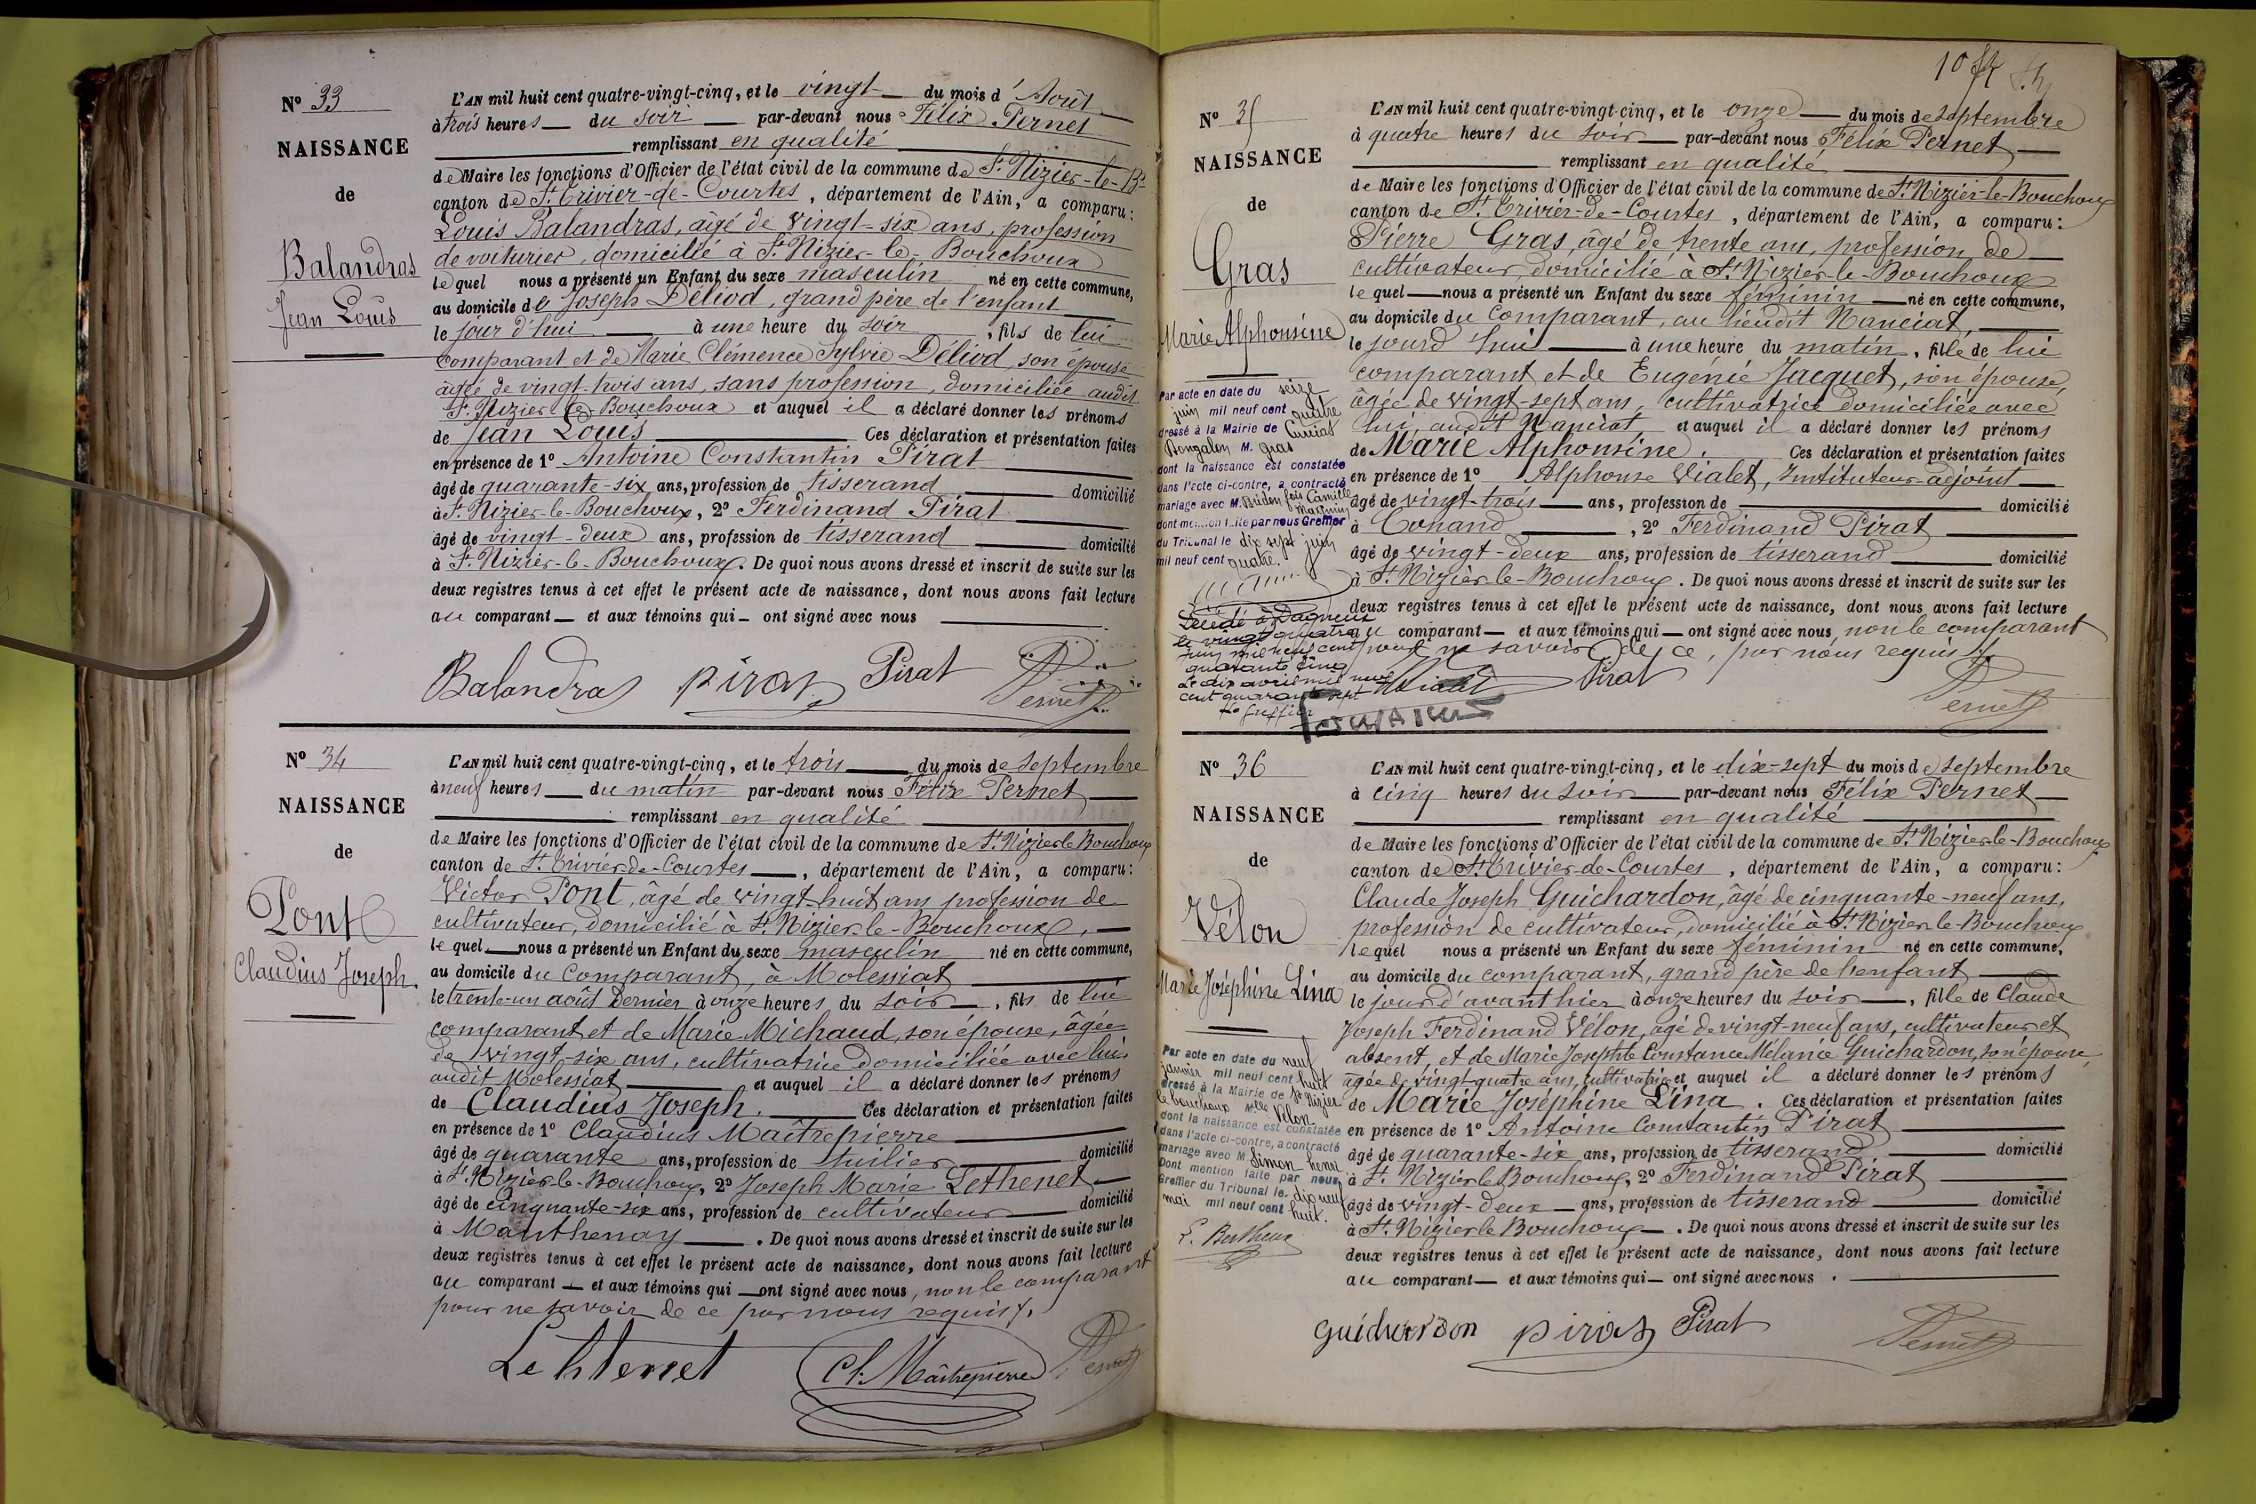 Nº 33
NAISSANCE
de
Balandras
Jean Louis
L'AN mil huit cent quatre-vingt-cinq, et le vingt du mois d'Août
à trois heures du soir par-devant nous Félix Pernet
remplissant en qualité
de Maire les fonctions d'Officier de l'état civil de la commune de St Nizier-le-Bx
canton de St Trivier-de-Courtes, département de l'Ain, a comparu:
Louis Balandras, âgé de vingt-six ans, profession
de voiturier, domicilié à St Nizier-le-Bouchoux
lequel nous a présenté un Enfant du sexe masculin né en cette commune,
au domicile de Joseph Déliod, grand père de l'enfant
le jour d'hui à une heure du soir, fils de lui
comparant et de Marie Clémence Sylvie Déliod, son épouse
âgée de vingt-trois ans, sans profession, domiciliée audit
St Nizier-le-Bouchoux et auquel il a déclaré donner les prénoms
de Jean Louis Ces déclaration et présentation faites
en présence de 1º Antoine Constantin Pirat
âgé de quarante-six ans, profession de tisserand domicilié
à St Nizier-le-Bouchoux, 2º Ferdinand Pirat
âgé de vingt-deux ans, profession de tisserand domicilié
à St Nizier-le-Bouchoux. De quoi nous avons dressé et inscrit de suite sur les
deux registres tenus à cet effet le présent acte de naissance, dont nous avons fait lecture
au comparant et aux témoins qui ont signé avec nous
Balandras pirat Pirat Pernet
Nº 34
NAISSANCE
de
Pont
Claudius Joseph.
L'AN mil huit cent quatre-vingt-cinq, et le trois du mois de septembre
à neuf heures du matin par-devant nous Félix Pernet
remplissant en qualité
de Maire les fonctions d'Officier de l'état civil de la commune de St Nizier le Bouchoux
canton de St Trivier-de-Courtes, département de l'Ain, a comparu:
Victor Pont, âgé de vingt-huit ans profession de
cultivateur, domicilié à St Nizier-le-Bouchoux,
lequel nous a présenté un Enfant du sexe masculin né en cette commune,
au domicile du comparant, à Molessiat
le trente-un août dernier à onze heures du soir, fils de lui
comparant et de Marie Michaud, son épouse, âgée
de vingt-six ans, cultivatrice domiciliée avec lui
audit Molessiat et auquel il a déclaré donner les prénoms
de Claudius Joseph. Ces déclaration et présentation faites
en présence de 1º Claudius Maîtrepierre
âgé de quarante ans, profession de tuilier domicilié
à St Nizier-le-Bouchoux, 2º Joseph Marie Lethenet
âgé de cinquante-six ans, profession de cultivateur domicilié
à Manthenay. De quoi nous avons dressé et inscrit de suite sur les
deux registres tenus à cet effet le présent acte de naissance, dont nous avons fait lecture
au comparant et aux témoins qui ont signé avec nous, non le comparant
pour ne savoir de ce par nous requis.
Lethtenet Cl. Maîtrepierre Pernet
10
Nº 35
NAISSANCE
de
Gras
Marie Alphonsine
Par acte en date du seize
juin mil neuf cent quatre
dressé à la Mairie de Curciat
Dongalon M. Gras
dont la naissance est constatée
dans l'acte ci-contre, a contracté
mariage avec M. Camille
dont mention faite par nous Greffier
du Tribunal le dix sept juin
mil neuf cent quatre.
Décédé à Dagneux
le vingt quatre
juin mil neuf cent
quarante cinq
Le dix avril mil neuf
cent quarante sept
Le greffier
L'AN mil huit cent quatre-vingt-cinq, et le onze du mois de septembre
à quatre heures du soir par-devant nous Félix Pernet
remplissant en qualité
de Maire les fonctions d'Officier de l'état civil de la commune de St Nizier-le-Bouchoux
canton de St Trivier-de-Courtes, département de l'Ain, a comparu:
Pierre Gras, âgé de trente ans, profession de
cultivateur, domicilié à St Nizier-le-Bouchoux
lequel nous a présenté un Enfant du sexe féminin né en cette commune,
au domicile du comparant, au lieudit Nanciat,
le jourd'hui à une heure du matin, fille de lui
comparant et de Eugénie Jacquet, son épouse,
âgée de vingt-sept ans, cultivatrice domiciliée avec
lui, audit Nanciat, et auquel il a déclaré donner les prénoms
de Marie Alphonsine. Ces déclaration et présentation faites
en présence de 1º Alphonse Vialet, Instituteur-adjoint
âgé de vingt-trois ans, profession de domicilié
à Conand, 2º Ferdinand Pirat
âgé de vingt-deux ans, profession de tisserand domicilié
à St Nizier-le-Bouchoux. De quoi nous avons dressé et inscrit de suite sur les
deux registres tenus à cet effet le présent acte de naissance, dont nous avons fait lecture
au comparant et aux témoins qui ont signé avec nous, non le comparant
pour ne savoir de ce, par nous requis.
Vialet Pirat Pernet
Nº 36
NAISSANCE
de
Vélon
Marie Joséphine Lina
Par acte en date du neuf
janvier mil neuf cent huit
dressé à la Mairie de St Nizier
le bouchoux Mlle Vélon
dont la naissance est constatée
dans l'acte ci-contre, a contracté
mariage avec M Simon henri
Dont mention faite par nous
Greffier du Tribunal le dix neuf
mai mil neuf cent huit.
L'AN mil huit cent quatre-vingt-cinq, et le dix-sept du mois de septembre
à cinq heures du soir par-devant nous Félix Pernet
remplissant en qualité
de Maire les fonctions d'Officier de l'état civil de la commune de St Nizier-le-Bouchoux
canton de St Trivier-de-Courtes, département de l'Ain, a comparu:
Claude Joseph Guichardon, âgé de cinquante-neuf ans,
profession de cultivateur, domicilié à St Nizier le Bouchoux
lequel nous a présenté un Enfant du sexe féminin né en cette commune,
au domicile du comparant, grand père de l'enfant
le jour d'avant hier à onze heures du soir, fille de Claude
Joseph Ferdinand Vélon, âgé de vingt-neuf ans, cultivateur et
absent, et de Marie Josephte Constance Mélanie Guichardon, son épouse,
âgée de vingt-quatre ans, cultivatrice et auquel il a déclaré donner les prénoms
de Marie Joséphine Lina. Ces déclaration et présentation faites
en présence de 1º Antoine Constantin Pirat
âgé de quarante-six ans, profession de tisserand domicilié
à St Nizier le Bouchoux, 2º Ferdinand Pirat
âgé de vingt-deux ans, profession de tisserand domicilié
à St Nizier le Bouchoux. De quoi nous avons dressé et inscrit de suite sur les
deux registres tenus à cet effet le présent acte de naissance, dont nous avons fait lecture
au comparant et aux témoins qui ont signé avec nous.
Guichardon pirat Pirat Pernet